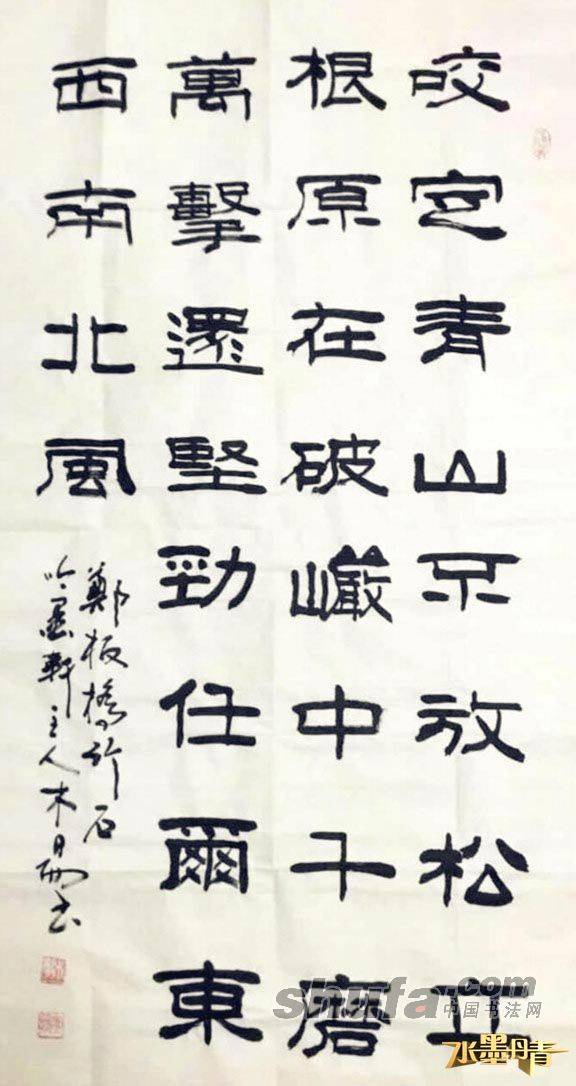 咬定青山不放松立
根原在破巖中千磨
萬擊還堅勁任爾東
西南北風
鄭板橋竹石
吟墨軒主人木日书
shufa.com
中国书法网
水墨丹青